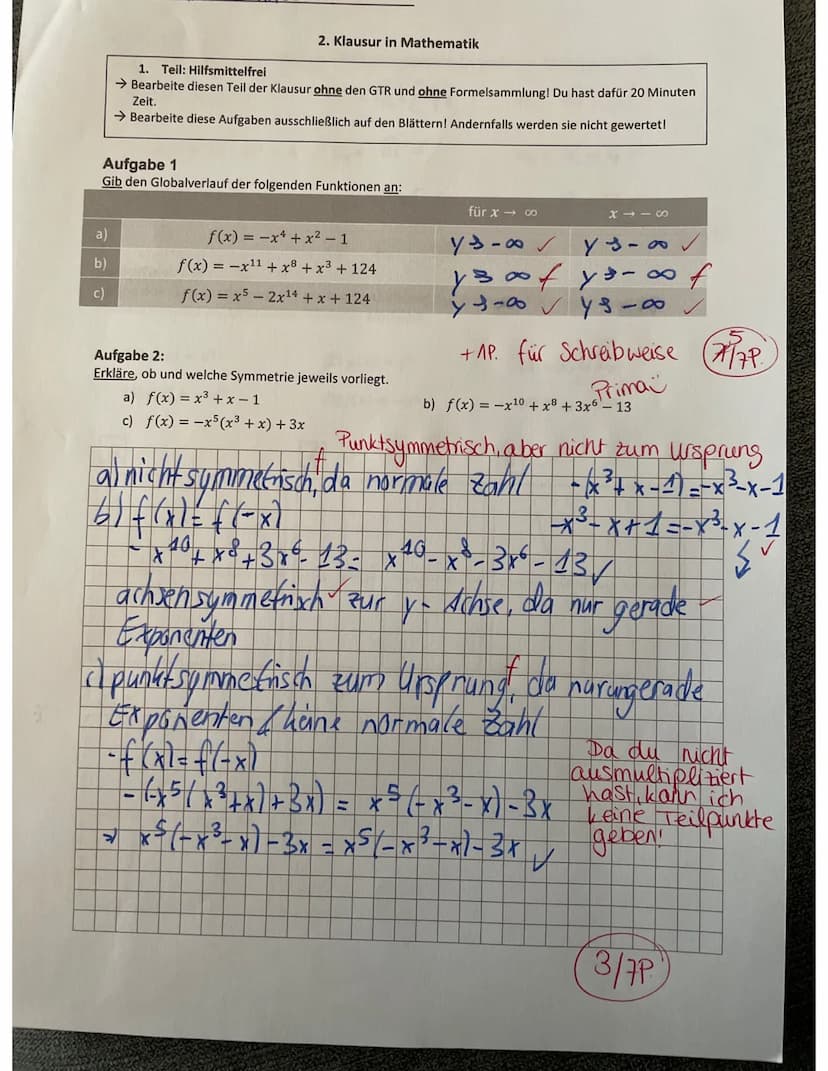 2. Klausur in Mathematik
1. Teil: Hilfsmittelfrei
→ Bearbeite diesen Teil der Klausur ohne den GTR und ohne Formelsammlung! Du hast dafür 20 Minuten
Zeit.
→ Bearbeite diese Aufgaben ausschließlich auf den Blättern! Andernfalls werden sie nicht gewertet!
Aufgabe 1
Gib den Globalverlauf der folgenden Funktionen an:
für x → ∞ x → − ∞
a) f(x) = −x⁴ + x² − 1 y → -∞ ✓ y → -∞ ✓
b) f(x) = −x¹¹ + x⁸ + x³ + 124 y → ∞ f y → -∞ f
c) f(x) = x⁵ − 2x¹⁴ + x + 124 y → -∞ ✓ y → -∞ ✓
+1P. für Schreibweise 5/7P.
Aufgabe 2:
Erkläre, ob und welche Symmetrie jeweils vorliegt.
Prima
a) f(x) = x³ + x − 1 b) f(x) = −x¹⁰ + x⁸ + 3x⁶ − 13
c) f(x) = −x⁵(x³ + x) + 3x
Punktsymmetrisch, aber nicht zum Ursprung
a) nicht symmetrisch, f da normale Zahl -(x³+x-1)=-x³-x-1
b) f(x)=f(-x) -x³-x+1=-x³-x-1
-x¹⁰+x⁸+3x⁶-13= x¹⁰-x⁸-3x⁶-13 ✓ ↯ ✓
achsensymmetrisch ✓ zur y-Achse, da nur gerade
Exponenten
c) punktsymmetrisch zum Ursprung f, da nur ungerade
Exponenten / keine normale Zahl
-f(x)=f(-x)
-(-x⁵(x³+x)+3x) = x⁵(-x³-x)-3x
⇒ x⁵(-x³-x)-3x = x⁵(-x³-x)-3x ✓
Da du nicht
ausmultipliziert
hast, kann ich
keine Teilpunkte
geben!
3/7P